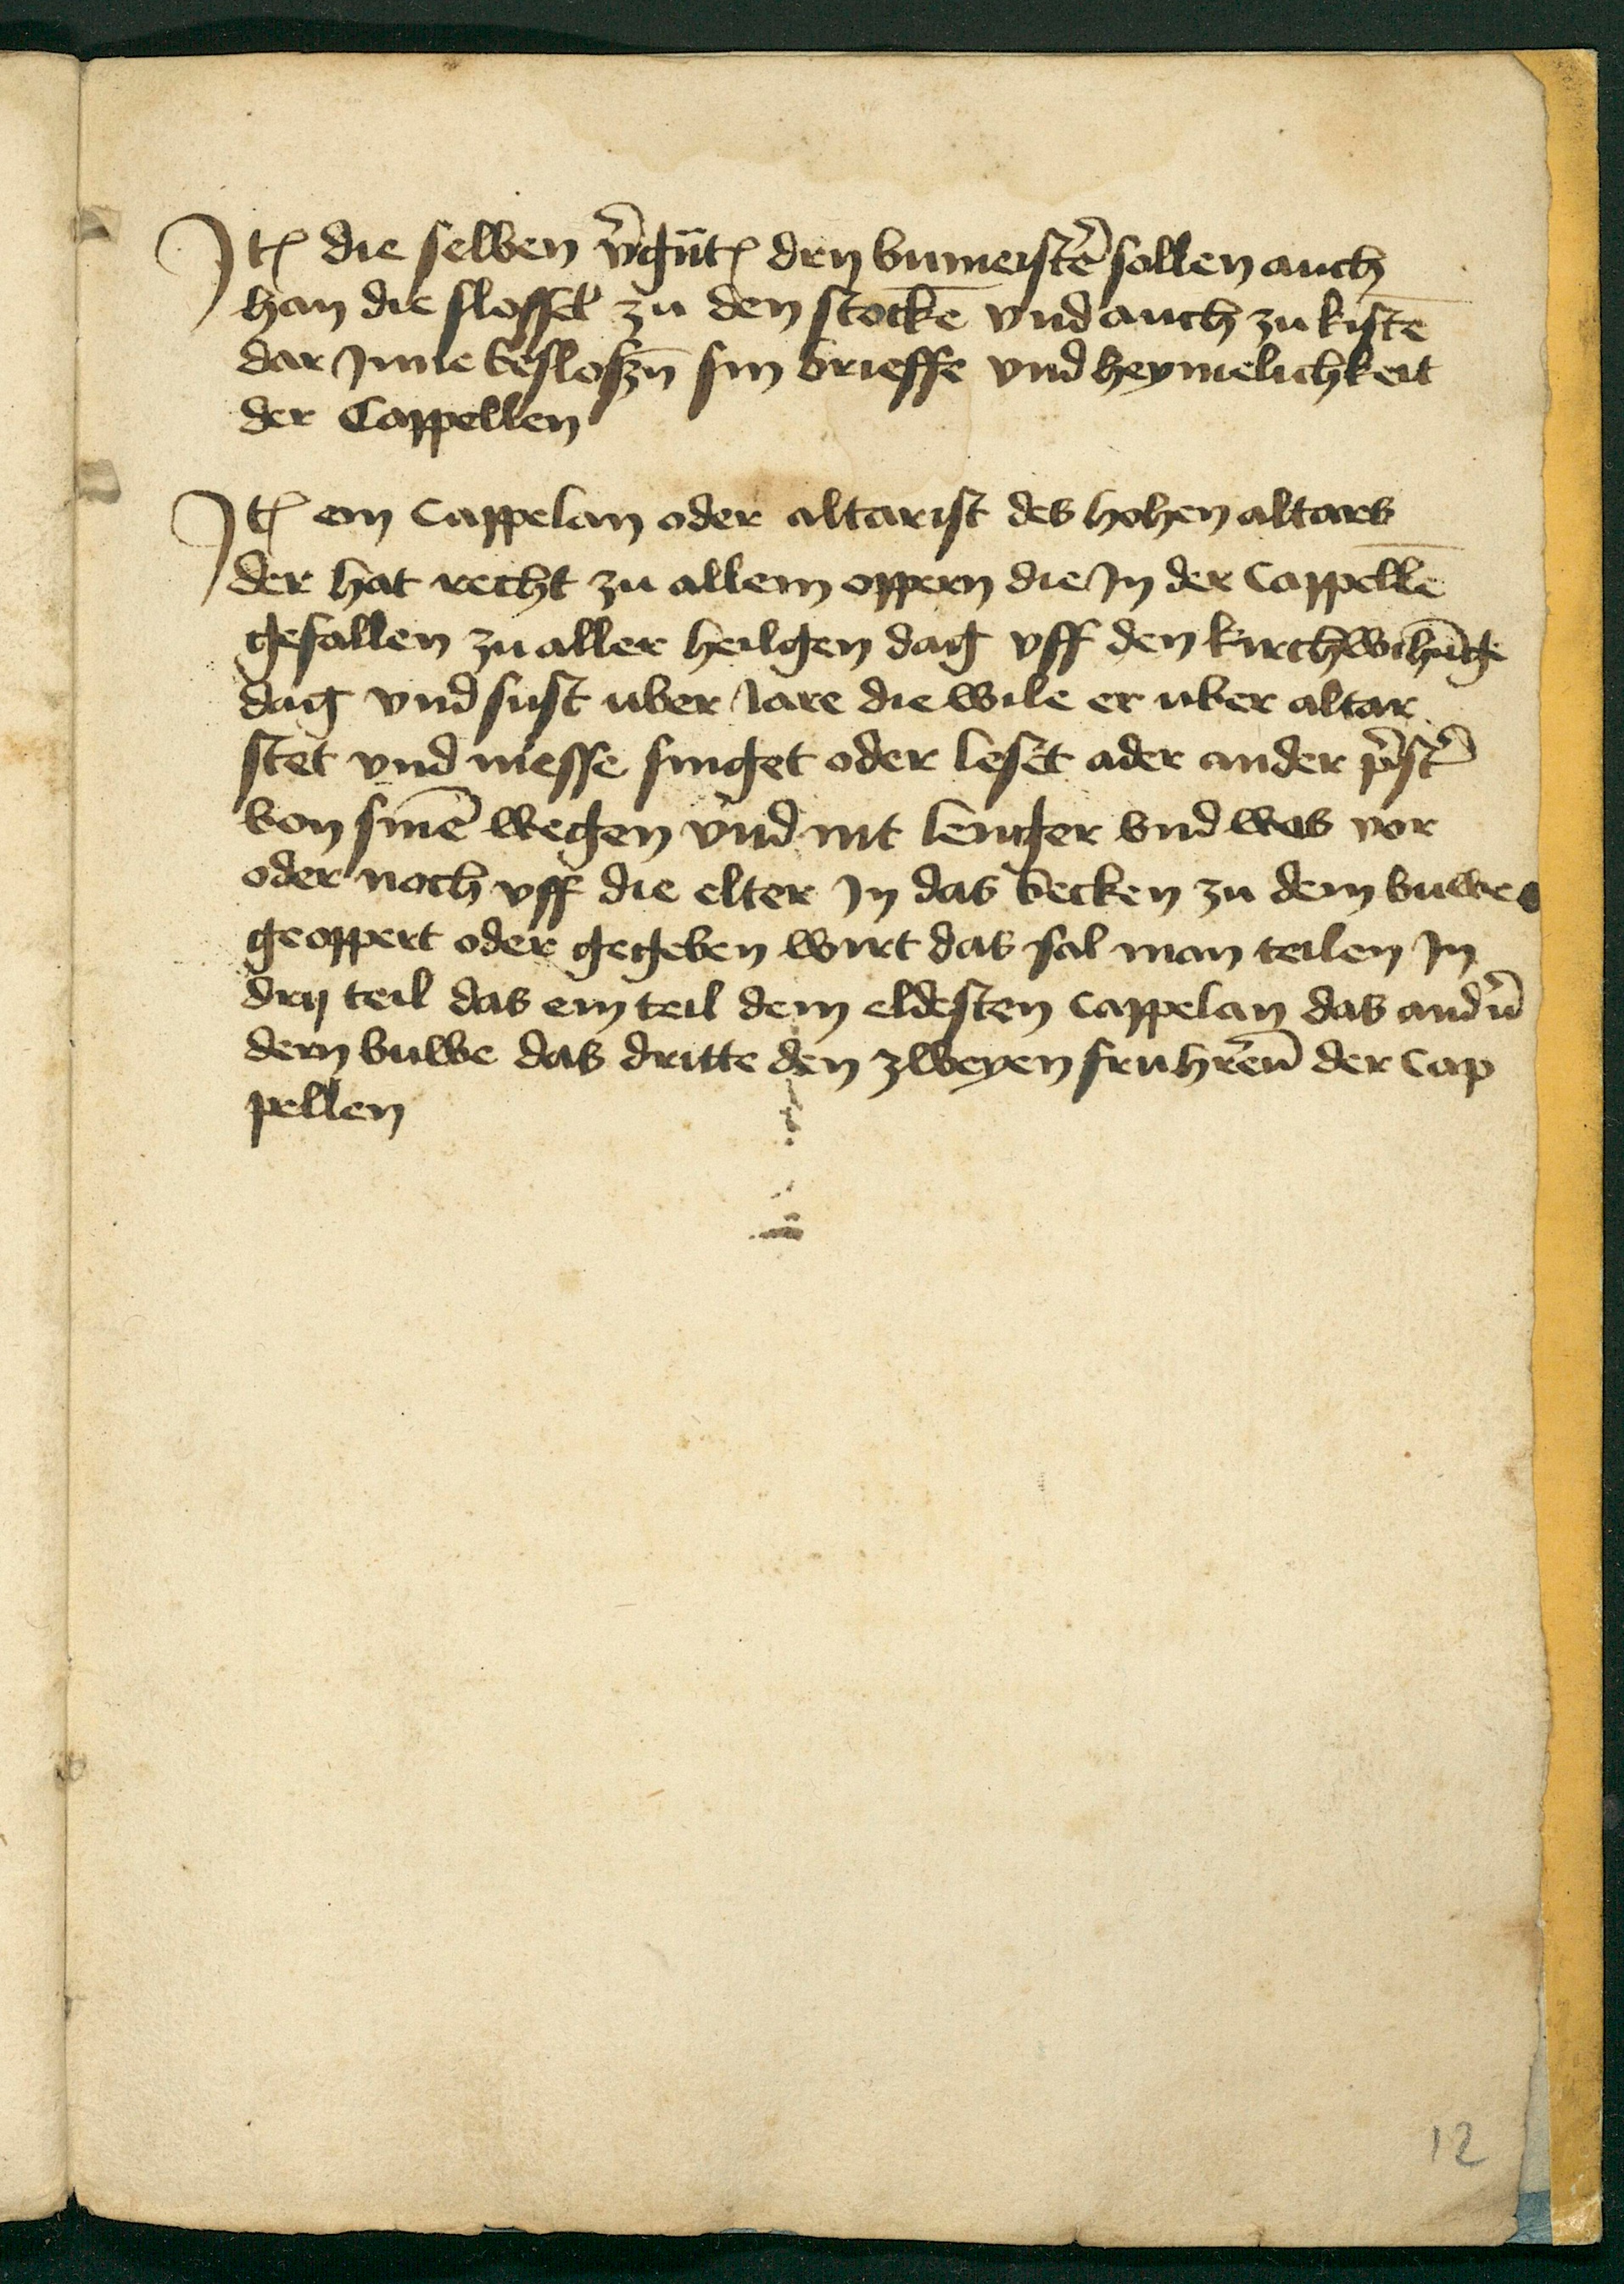 Jt̄ die selben v̄gnt̄ drij bumeist̄e sollen auch
han die slossel zu den stockē vnd auch zu kistē
dar Jnne besloszn̄ sin brieffe vnd heymelichkeit
der Cappellen
Jt̄ ein Cappelan oder altarist des hohen altars
der hat recht zu allem oppern die Jn der Cappellē
gefallen zu aller heilgen dag vff den kirchwihūge
dag vnd sust uber Jare die wile er uber altar
stet vnd messe singet oder leset ader ander p̄st̄
von sinē wegen vnd nit lenger vnd was vor
oder noch vff die elter Jn das becken zu dem buwe
geoppert oder gegeben wirt das sal man teilen Jn
drij teil das ein teil dem eldesten Cappelan das and̄n
dem buwe das dritte den zweyen fruhr̄en der Cap
pellen
12